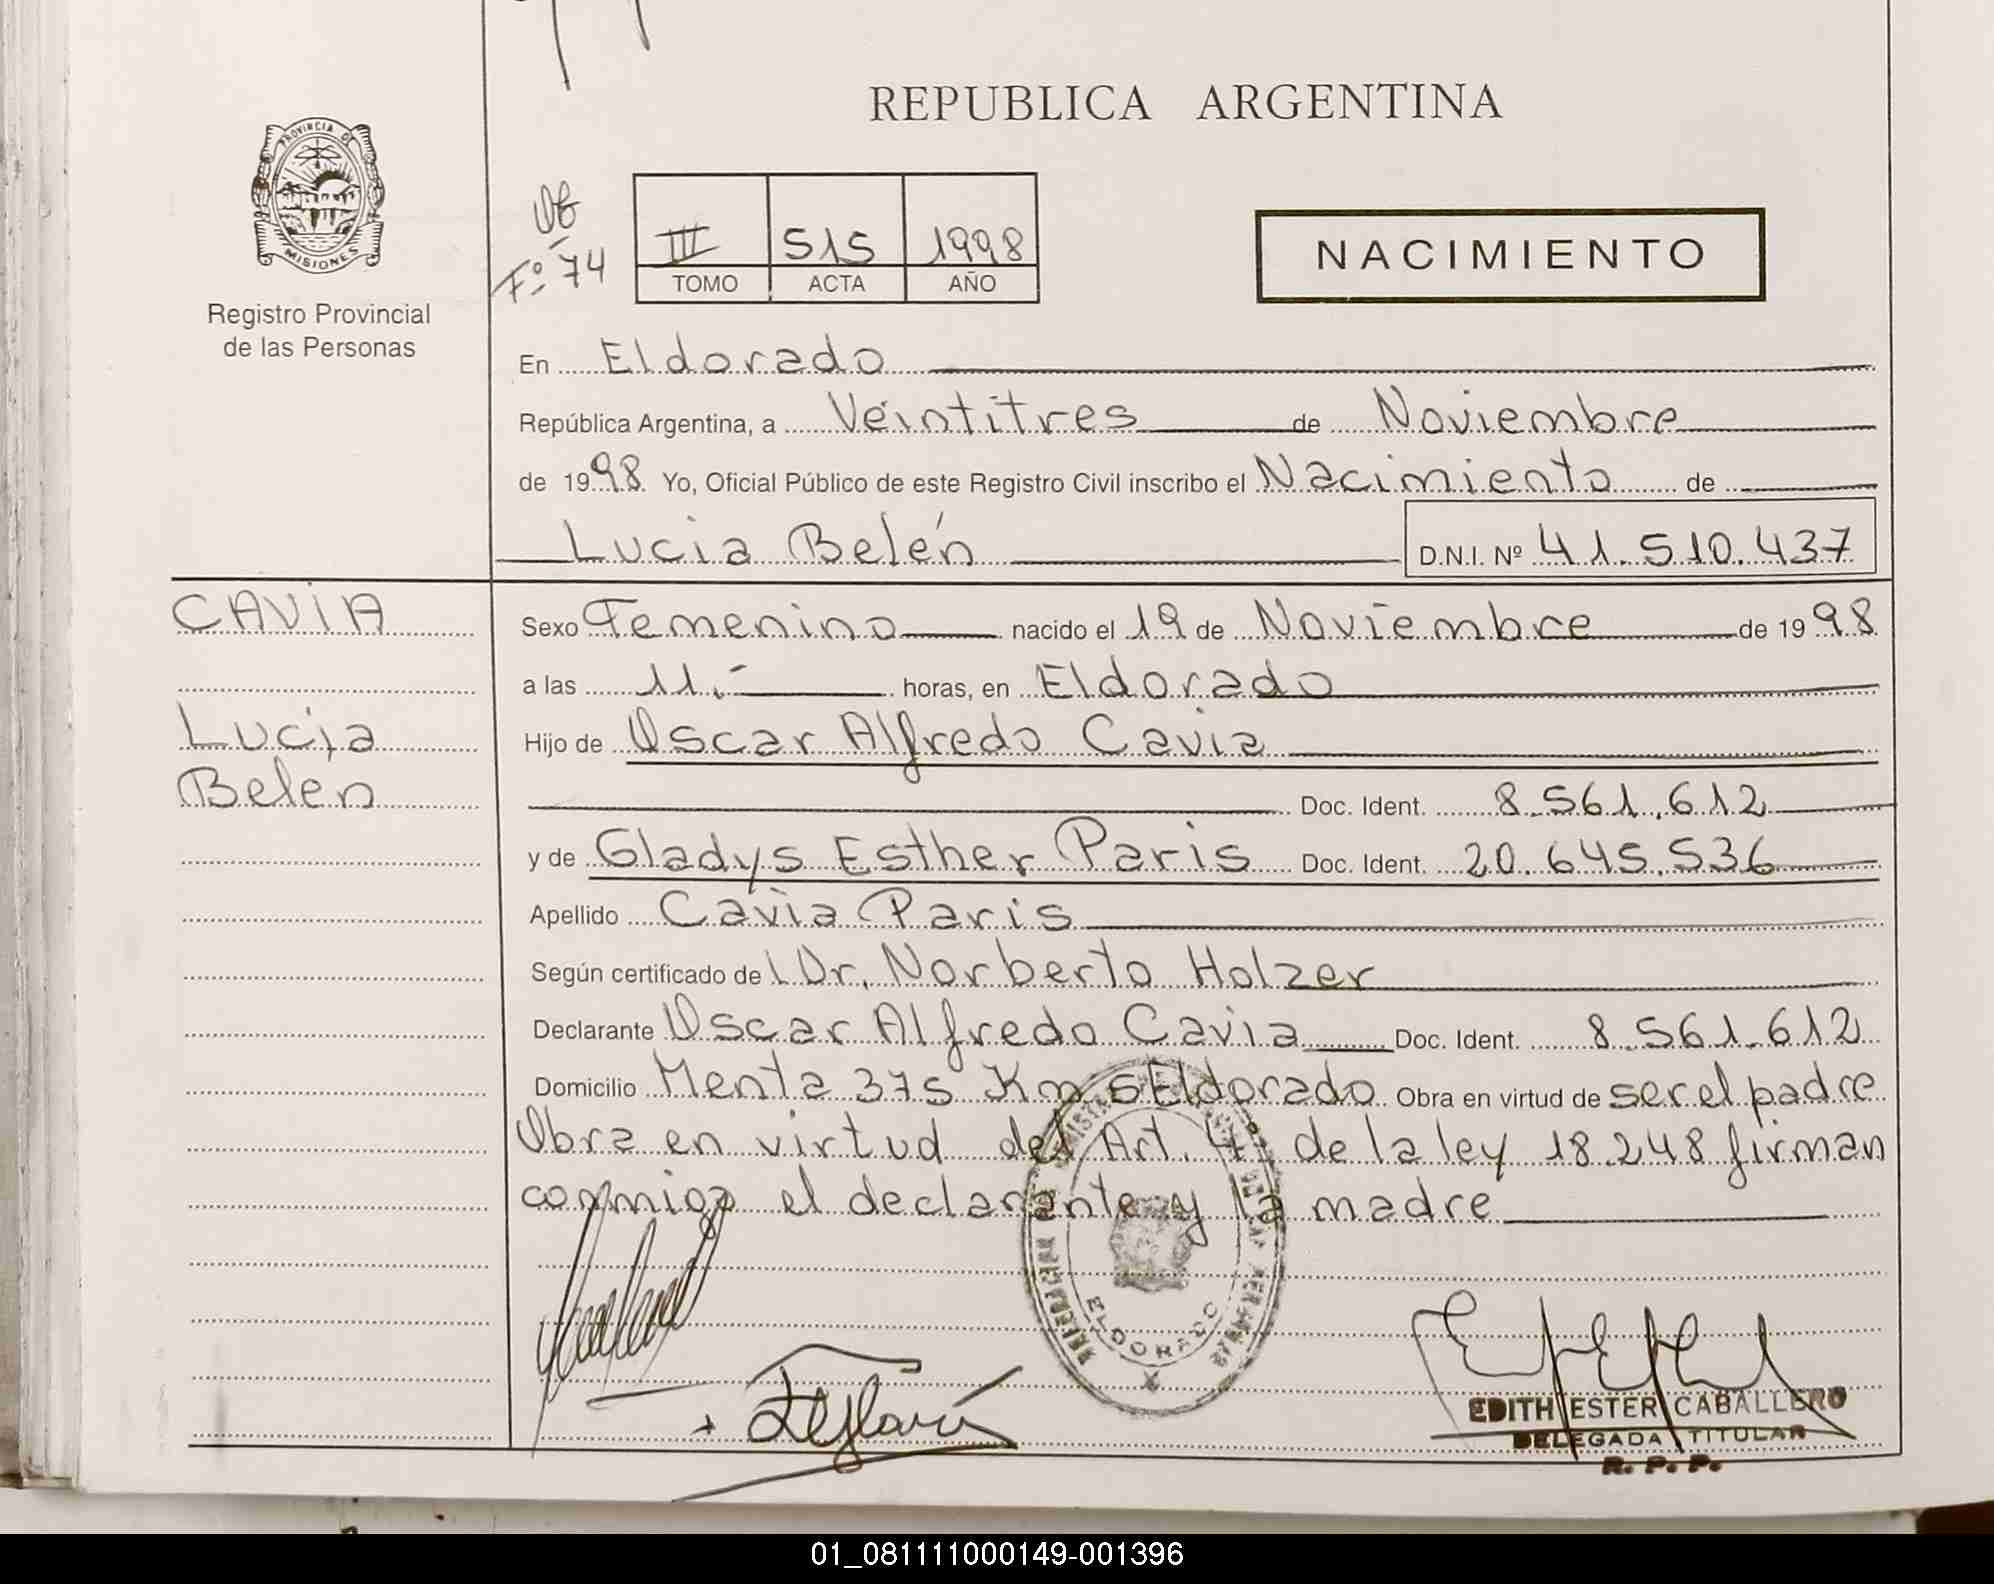 REPUBLICA ARGENTINA
PROVINCIA DE
MISIONES
Registro Provincial
de las Personas
Fº 74
III 515 1998
TOMO ACTA AÑO
NACIMIENTO
En Eldorado
República Argentina, a Veintitres de Noviembre
de 1998 Yo, Oficial Público de este Registro Civil inscribo el Nacimiento de
Lucia Belén D.N.I. Nº 41.510.437
CAVIA
Lucia
Belen
Sexo Femenino nacido el 19 de Noviembre de 1998
a las 11.- horas, en Eldorado
Hijo de Oscar Alfredo Cavia
Doc. Ident. 8.561.612
y de Gladys Esther Paris Doc. Ident. 20.645.536
Apellido Cavia Paris
Según certificado de l Dr. Norberto Holzer
Declarante Oscar Alfredo Cavia Doc. Ident. 8.561.612
Domicilio Menta 375 Km 5 Eldorado Obra en virtud de ser el padre
Obra en virtud del Art. 4: de la ley 18.248 firman
conmigo el declarante y la madre
ELDORADO
EDITH ESTER CABALLERO
DELEGADA TITULAR
R. P. P.
01_081111000149-001396